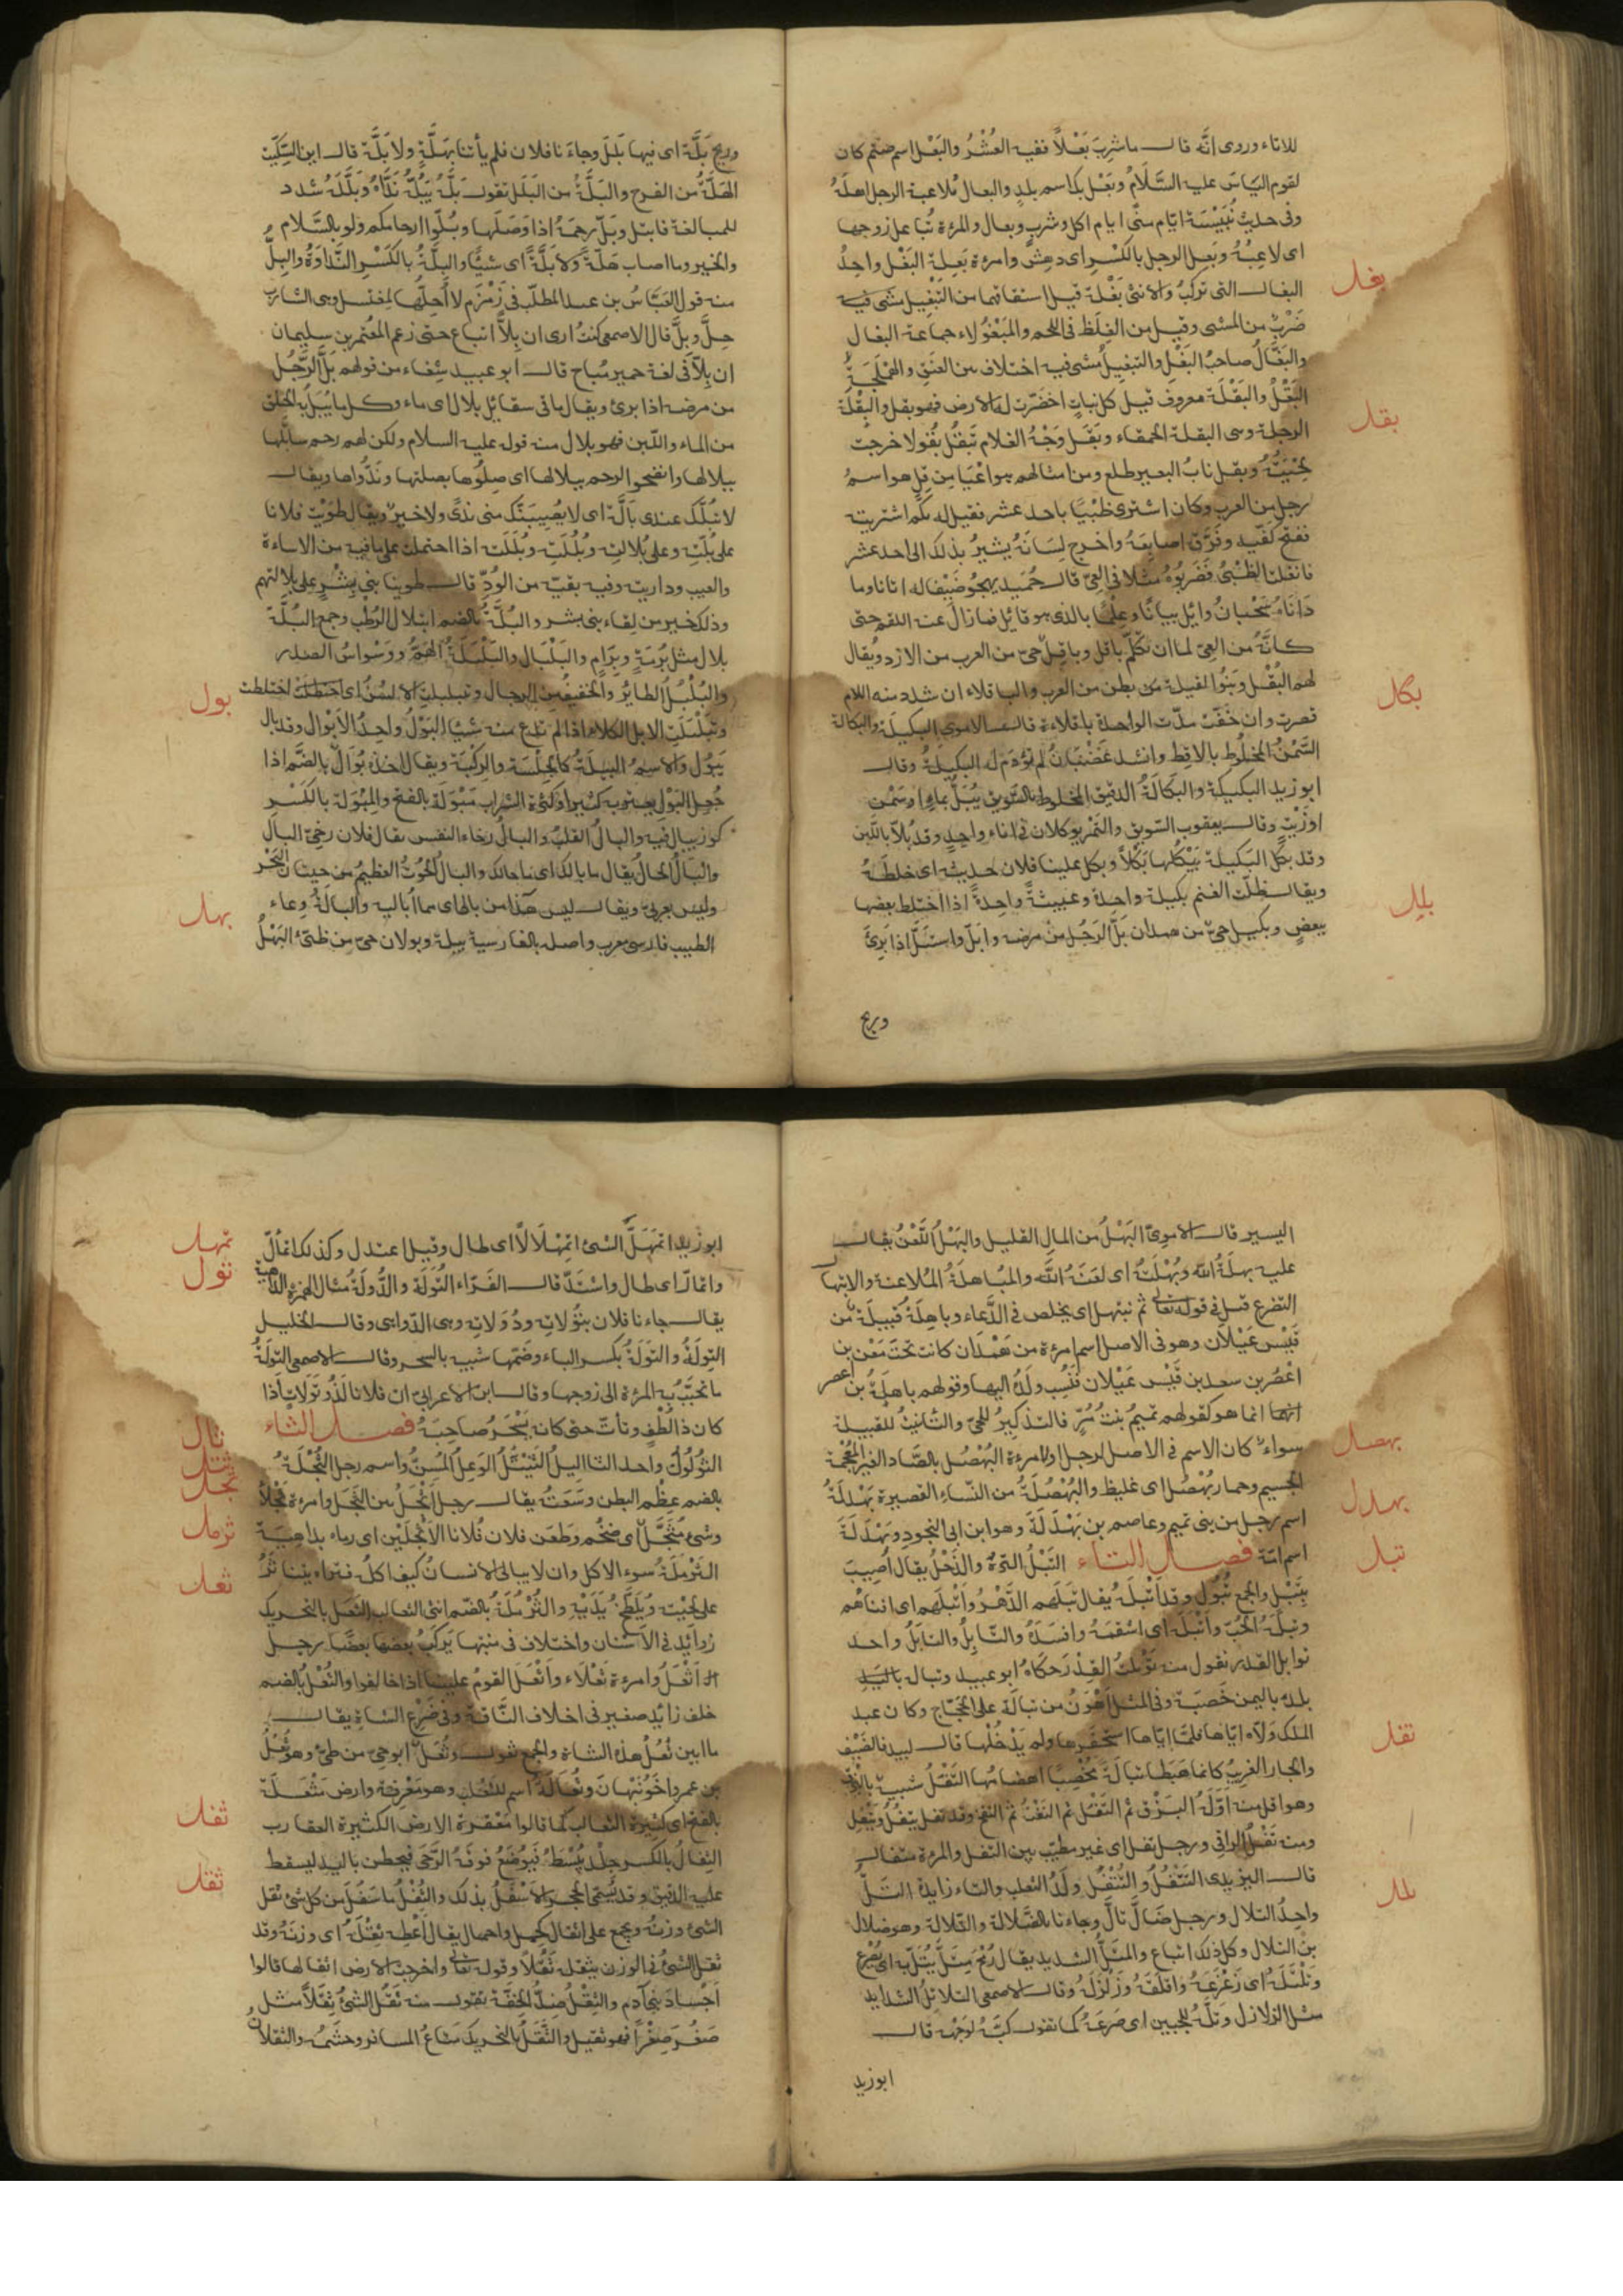 للاناء وروى انّه قال ما شرِبَ بَعْلاً ففيه العُشْرُ والبَعْل اسم صنم كان
لقوم الياسَ عليه السَّلامُ وبَعْل بك اسم بلدٍ والبعال مُلاعبة الرجل اهلَهُ
وفى حديث ايّام منًى ايام اكل وشرب وبعال والمرءة تُباعل زوجها
اى لاعِبُهُ وبَعِل الرجل بالكَسْرِ اى دهِشَ وامرءة بَعِلة البَغْل واحِدُ
بغل
البغال التى تركبُ والانثى بَغْلة قيل اشتقاقها من التَبْغِيل مشى فيه
ضَرْبٌ من المشى وقيل من الغِلَظ فى اللحم والمَبْغُولاء جماعة البغال
والبَغَّالُ صاحبُ البَغْلِ والتبغيلُ مشى فيه اختلاف بين العَنَقِ والهَمْلَجَةِ
بقل
البَقْلُ والبَقْلَة معروف قيل كل نباتٍ اخضَرّت له الارض فهو بقل والبقْلَة
الرجلة وهى البقلة الحمقاء وبَقَلَ وَجْهُ الغلام يَبْقُلُ بُقُولا خرجت
لحْيَتُهُ وبقل نابُ البعير طلع ومن امثالهم هو اعْيَا مِن باقِلٍ هو اسمُ
رجل من العرب وكان اشترى ظبْيًا باحد عشر فقيل له بكَم اشتريته
ففتح كفّيه وفرَّق اصابعَهُ واخرج لِسَانَهُ يشيرُ بذلك الى احد عشر
فانفلت الظَبْىُ فضربُوهُ مثلا فى العِىّ قال حُمَيد يهجُو ضَيْفا له اتانا وما
دَانَاهُ سَحْبانُ وائِل بيانًا وعِلْمًا بالذى هو قائِل فما زال عنه اللقم حتى
كانَّهُ من العِىّ لما ان تكلّم باقل وباقِل حىّ من العرب من الازد ويُقال
بكل
لهم البُقْل وبَنُوا بقيلة من بطن من العرب والباقلاء ان شددت اللام
قصرت وان خَفّفت مدّت الواحدة باقلاءة قال الاموى البكيلَة والبكالة
السَّمْنُ المخلُوط بالاقِط وانشد غَضْبَانُ لم تُؤدَم له البكيلَةُ وقال
ابو زيد البكيكة والبَكالَةُ الدقيق المخلوط بالسَّوِيق يُبَلُّ بماءٍ او سَمْن
او زَيْتٍ وقال يعقوب السَّوِيق والتَمْر يوكلان فى اناءٍ واحدٍ وقد بُلاّ باللّبن
وقد بكَل البَكيلة يَبْكُلها بَكْلاً وبكل علينا فلان حديثه اى خلطَهُ
بلل
ويقال ظلّت الغنم بكيلة واحدة وعبيثةً واحدةً اذا اختلط بعضها
ببعضٍ وبكيل حىّ من همدان بَلَّ الرَجُل مِنْ مرضه وابلّ واستبلّ اذا برِئَ
وريح
وريحٌ بَلَّة اى فيها بَلَلٌ وجاءَنا فلان فلم يأتنا بهَلَّةٍ ولا بَلَّة قال ابن السِّكِّيت
الهَلَّةُ من الفرح والبَلَّةُ من البَلَل تقول بَلَّهُ يَبُلُّهُ نَدَّاهُ وبَلَّلَهُ شدد
للمبالغة فابتل وبَلَّ رحِمَهُ اذا وَصَلَها وبُلّوا ارحامكم ولو بالسَّلام
والخير وما اصاب هَلَّةً ولا بَلَّةً اى شيئًا والبِلَّةُ بالكَسْرِ النَّداوَةُ والبِلُّ
منه قول العَبّاس بن عبد المطلّب فى زَمْزَم لا أُحِلُّها لمغتسل وهى لشارب
حِلّ وبِلّ قال الاصمعى كنتُ ارى ان بِلاًّ اتباع حتى زعم المعتمر بن سليمان
ان بِلاًّ فى لغة حمير مُباح قال ابو عبيد شِفاء من قولهم بَلَّ الرَّجُل
من مرضه اذا برئ ويقال ما فى سقائِك بلالٌ اى ماء وكل ما يُبَلُّ به الحَلق
من الماء واللّبن فهو بلال منه قوله عليه السلام ولكن لهم رحم سأبُلُّها
ببلالها وانضحوا الرحم ببلالها اى صِلُوها بصلتها ونَدُّواها ويقال
لا تبُلُّك عندى بَالَّة اى لا يُصِيبَنّك منى نَدًى ولا خيرٌ ويقال طوَيْت فلانا
على بُلّتِه وعلى بُلالتِه وبُلُلَتِه وبُلَلَتِه اذا احتملت على ما فيه من الاساءة
والعيب وداريته وفيه بقيّة من الوُدّ قال طوينا بنى بِشْرٍ على بلالتهم
وذلك خير من لِقاءِ بنى بشر والبُلَّةُ بالضم ابتلال الرُّطَب وجمع البُلَّة
بلال مثل بُرْمَةٍ وبِرَام والبَلْبَال والبَلْبَلَةُ الهَمُّ ووَسْوَاسُ الصدر
بول
والبُلْبُلُ الطائِرُ والخفيفُ من الرجال وتبلبلت الالسُنُ اى اختلطت
وتبَلْبَلَتِ الابل الكلاءَ اذا لم تدع منه شيئًا البَوْلُ واحِدُ الاَبْوال وقد بال
يَبُوْل والاسمُ البِيلَةُ كالجلْسَةِ والرِكْبَة ويقال اخذه بُوَال بالضَّم اذا
جُعِل البَوْل يعتريه كثيرا وكثرةُ الشراب مَبْوَلَة بالفتح والمِبْوَلة بالكَسْر
كوز يبال فيه والبال القلبُ والبالُ رخاء النفس يقال فلان رخىّ البال
والبَالُ الحالُ يقال ما بالك اى ما حالك والبالُ الحُوتُ العظيمُ من حيتان البَحْرِ
بهل
وليس بعربىّ ويقال ليس هذا من بالى اى مما أُبالِيه والبالَةُ وِعاء
الطيب فارسى معرب واصله بالفارسية بيلة وبولان حىّ من طَىّء البَهْلُ
اليسير قال الاموىّ البَهْلُ من المال القليل والبَهْلُ اللّعْنُ يقال
عليه بهلَةُ الله وبُهْلَتُهُ اى لعَنَهُ الله والمبُاهلَةُ المُلاعنة والابتهال
التضرع قيل فى قوله تعالى ثم نبتهل اى يخلص فى الدُّعاء وباهِلَةُ قبيلة من
قَيْس عَيْلان وهو فى الاصل اسم امرءة من هَمْدان كانت تحتَ مَعْن بن
اعْصُر بن سعد بن قَيْس عَيْلان فنُسِب ولَدُهُ اليها وقولهم باهلَةُ بن اعصر
انما هو كقولهم تميمُ بنتُ مُرّ فالتذكيرُ للحىّ والتانيث للقبيلة
بهصل
سواءٌ كان الاسم فى الاصل لرجل او لامرءة البُهْصُل بالصّاد الغير المعجمة
الجسيم وحمار بُهْصُل اى غليظ والبُهْصُلَةُ من النِّساءِ القصيرة بَهْدلَةُ
بهدل
اسم رجل من بنى تميم وعاصم بن بَهْدَلَةَ وهو ابن ابى النجود وبَهْدَلَة
تبل
اسم امّه فصل التاء التَبْلُ التِرَةُ والذّحْلُ يقال أُصِيبَ
بِتَبْلٍ والجمع تُبُول وقد اتْبلَهُ يُقال تَبَلَهم الدَّهْرُ واَتْبلَهم اى افناهُم
وتبلَهُ الحُبّ وأتْبَلَهُ اى اسْقمَهُ وافسدَهُ والتَّابِلُ والتابَلُ واحد
توابل القِدر تقول منه تَوْبلتُ القِدْرَ حكاهُ ابو عبيد وتبالة
بلدةٌ باليمن خَصِبَة وفى المثل اهْوَنُ من تبالَة على الحَجّاج وكان عبد
تفل
الملك وَلّاه ايّاها فلمّا اتاها استحقرها ولم يَدْخُلْها قال لبيد فالضَّيْف
والجار الغريب كانما هَبَطا تبالَةَ مُخْصِبًا اهضامُها التَفْل شبيهٌ بالبزق
وهو اقل منه اوّلَهُ البَزْق ثم التَفْل ثم النَفْثُ ثم النفخ وقد تفل يتفُلُ ويَتْفِل
ومنه تَفَلَ الراقى ورجل تفل اى غير مطيّب بين التفل والمرءة متفال
تلل
قال اليزيدى التَّتْفُلُ والتُّتْفُلُ ولَدُ الثعلب والتاء زايدة التَلّ
واحِدُ التلال ورجل ضَالّ تالّ وجاءنا بالضَّلالة والتّلالة وهو ضلال
بن التلال وكل ذلك اتباع والمِتَلُّ الشديد يقال رُمْح مِتَلّ يُتَلُّ به اى يُصْرع
وتَلْتَلَهُ اى زَعْزَعَهُ واقلقَهُ وزَلْزَلَهُ وقال الاصمعى التلاتِلُ الشدايد
مثل الزلازل وتَلَّهُ للجبين اى صَرَعَهُ كما تقول كبَّهُ لوَجْهِه قال
ابو زيد
تمهل
ابو زيد اتمَهَلَّ الشئ اتمِهْلَالاً اى طال وقيل اعتدل وكذلك اتمألّ
تول
واتمارّ اى طال واشتدّ قال الفَرّاء التُّوَلَة والدُّولَةُ مثال الهُمَزة الداهية
يقال جاءنا فلان بتُوَلاتِه ودُوَلاتِه وهى الدّواهى وقال الخليل
التِولَةُ والتُوَلَةُ بكسر التاء وضمّها شبيه بالسحر وقال الاصمعى التِوَلَةُ
ما تحبَّبُ به المرءة الى زوجها وقال ابن الاعرابىّ ان فلانا لَذُو تُوَلاتٍ اذا
ثال
كان ذا لُطْفٍ وتأتّ حتى كانه يَسْحَرُ صاحِبَهُ فصل الثاء
ثتل
الثُؤلُولُ واحد الثاليل الثَيْتَلُ الوَعِلُ المُسِنُّ واسم رجل الثُجْلَة
ثجل
بالضم عِظم البطن وسَعَتُهُ يقال رجل اثْجَلُ بين الثَجَل وامرءة ثَجْلاءُ
ثرمل
وشئ مُثجَّلٌ اى ضخُم وطَعَن فلان فُلانا الاثْجلَيْن اى رماه بداهِيَة
ثعل
الثَرْمَلَةُ سوء الاكل وان لا يبالى الانسانُ كيفَ اكلُه فتراه يتناثرُ
على لحيْتِه ويُلَطِّخُ يَدَيْهِ والثُّرْمُلَةُ بالضّم انثى الثعالب الثَعَل بالتحريك
زوايد فى الاسْنان واختلاف فى منبتها يَركَبُ بعضها بعضًا رجل
اَثْعَلُ وامرءة ثَعْلاءُ واَثْعَلَ القومُ علينا اذا خالفوا والثُعْلُ بالضم
خلف زايد صغير فى اخلاف النّاقة وفى ضَرْع الشاة يقال
ما ابين ثُعْلُ هذه الشاة والجمع ثعول وثُعَلٌ ابو حىّ من طىّ وهو ثُعَلُ
بن عمرو اخو نَبْهانَ وثُعَالَةُ اسم للثعْلب وهو مَعْرفة وارض مَثْعَلَة
ثفل
بالفتح اى كثيرة الثعالب كما قالوا مَعْقرة الارض الكثيرة العقارب
الثِفالُ بالكسر جِلْد يُبْسَطُ فيُوضَعُ فوقَهُ الرَّحَى فيطحن باليد ليسقط
ثقل
عليه الدقيق وقد يُسَمّى الحَجر الاسْفلُ بذلك والثُفْلُ ما سَفُلَ من كل شئ ثقل
الشئ وزنُهُ ويجمع على اثقال كحِمل واحمال يقال اَعْطِه ثِقْلَهُ اى وزنَهُ وقد
ثقل الشئ فى الوزن يثقل ثِقْلاً وقوله تعالى واخرجت الارض اثقالها قالوا
اَجْسَادَ بنى آدم والثِقْلُ ضِدُّ الخِفَّة تقول منه ثَقُلَ الشئ ثِقَلاً مثل
صَغُرَ صِغَرًا فهو ثقيل والثَّقَلُ بالتحريك مَتاعُ المسافر وحَشَمُهُ والثقلانُ